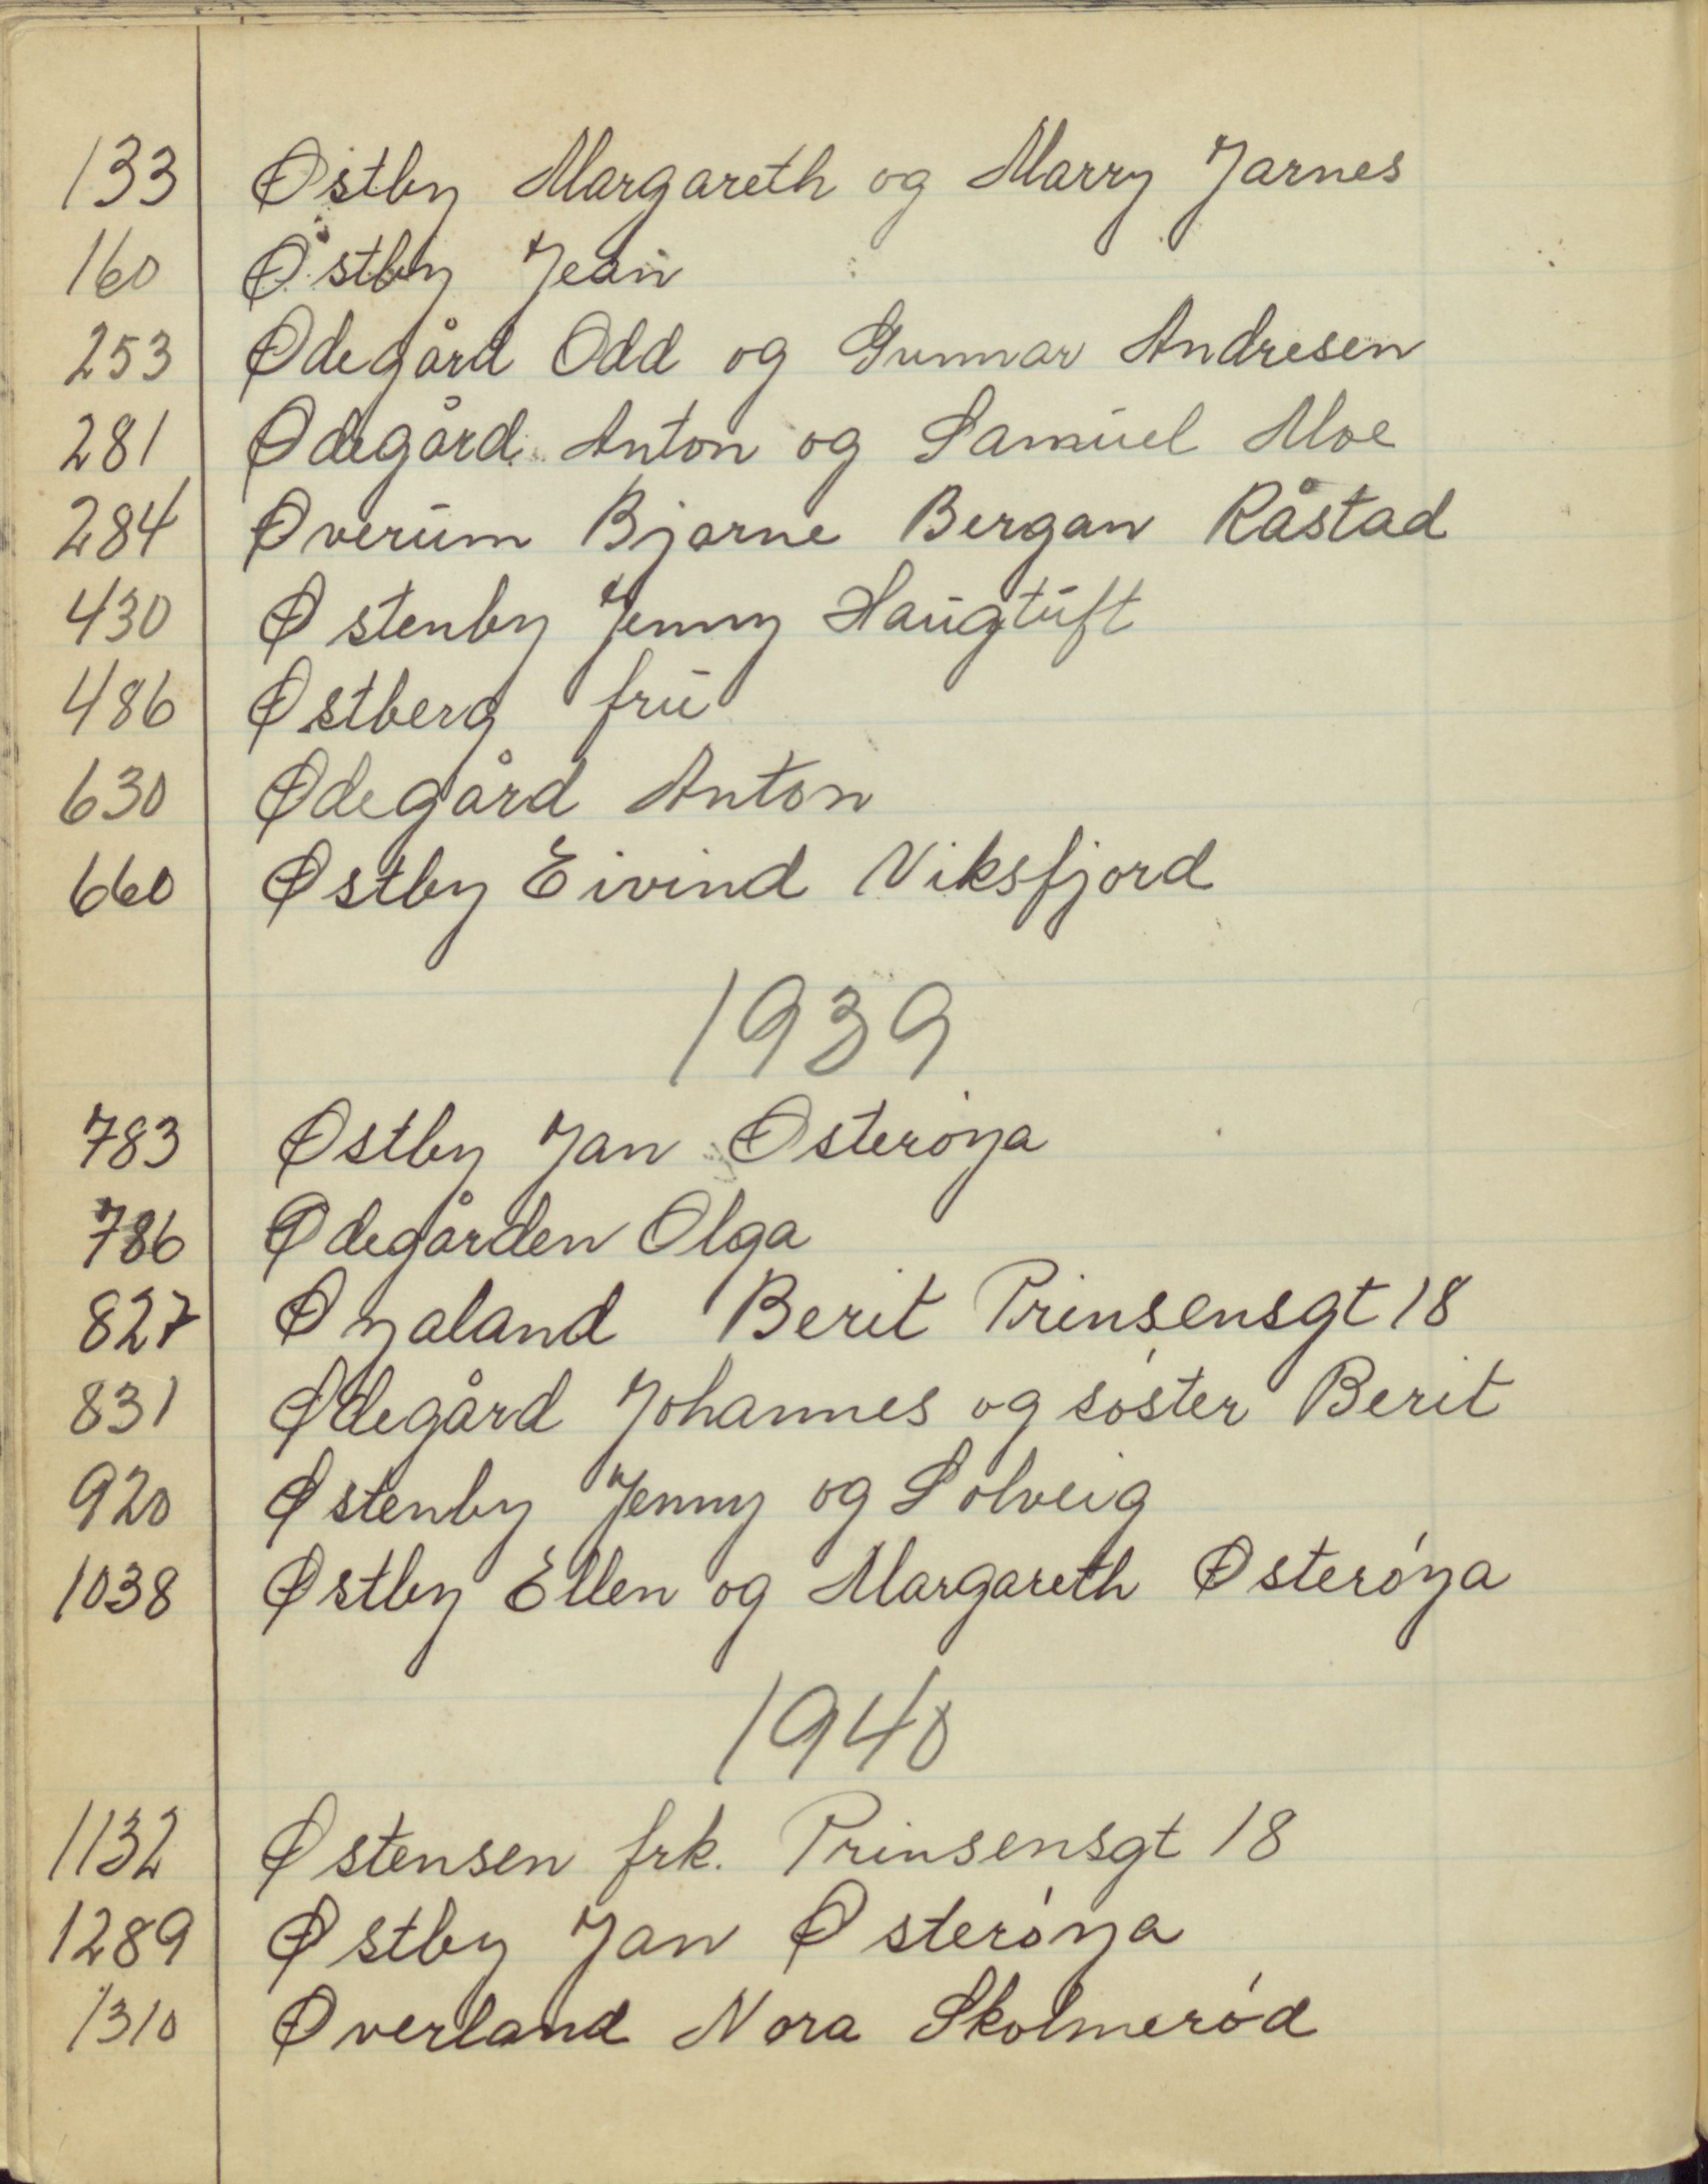 133 Østby Margareth og Marry Jarnes
160 Østby Jean
253 Ødegård Odd og Gunnar Andresen
281 Ødegård Anton og Samuel Moe
284 Øverum Bjarne Bergan Råstad
430 Østenby Jenny Haugtuft
486 Østberg fru
630 Ødegård Anton
660 Østby Eivind Viksfjord
1939
783 Østby Jan Østerøya
786 Ødegården Olga
827 Øyaland Berit Prinsensgt 18
831 Ødegård Johannes og søster Berit
920 Østenby Jenny og Solveig
1038 Østby Ellen og Margareth Østerøya
1940
1132 Østensen frk. Prinsensgt 18
1289 Østby Jan Østerøya
1310 Øverland Nora Skolmerød